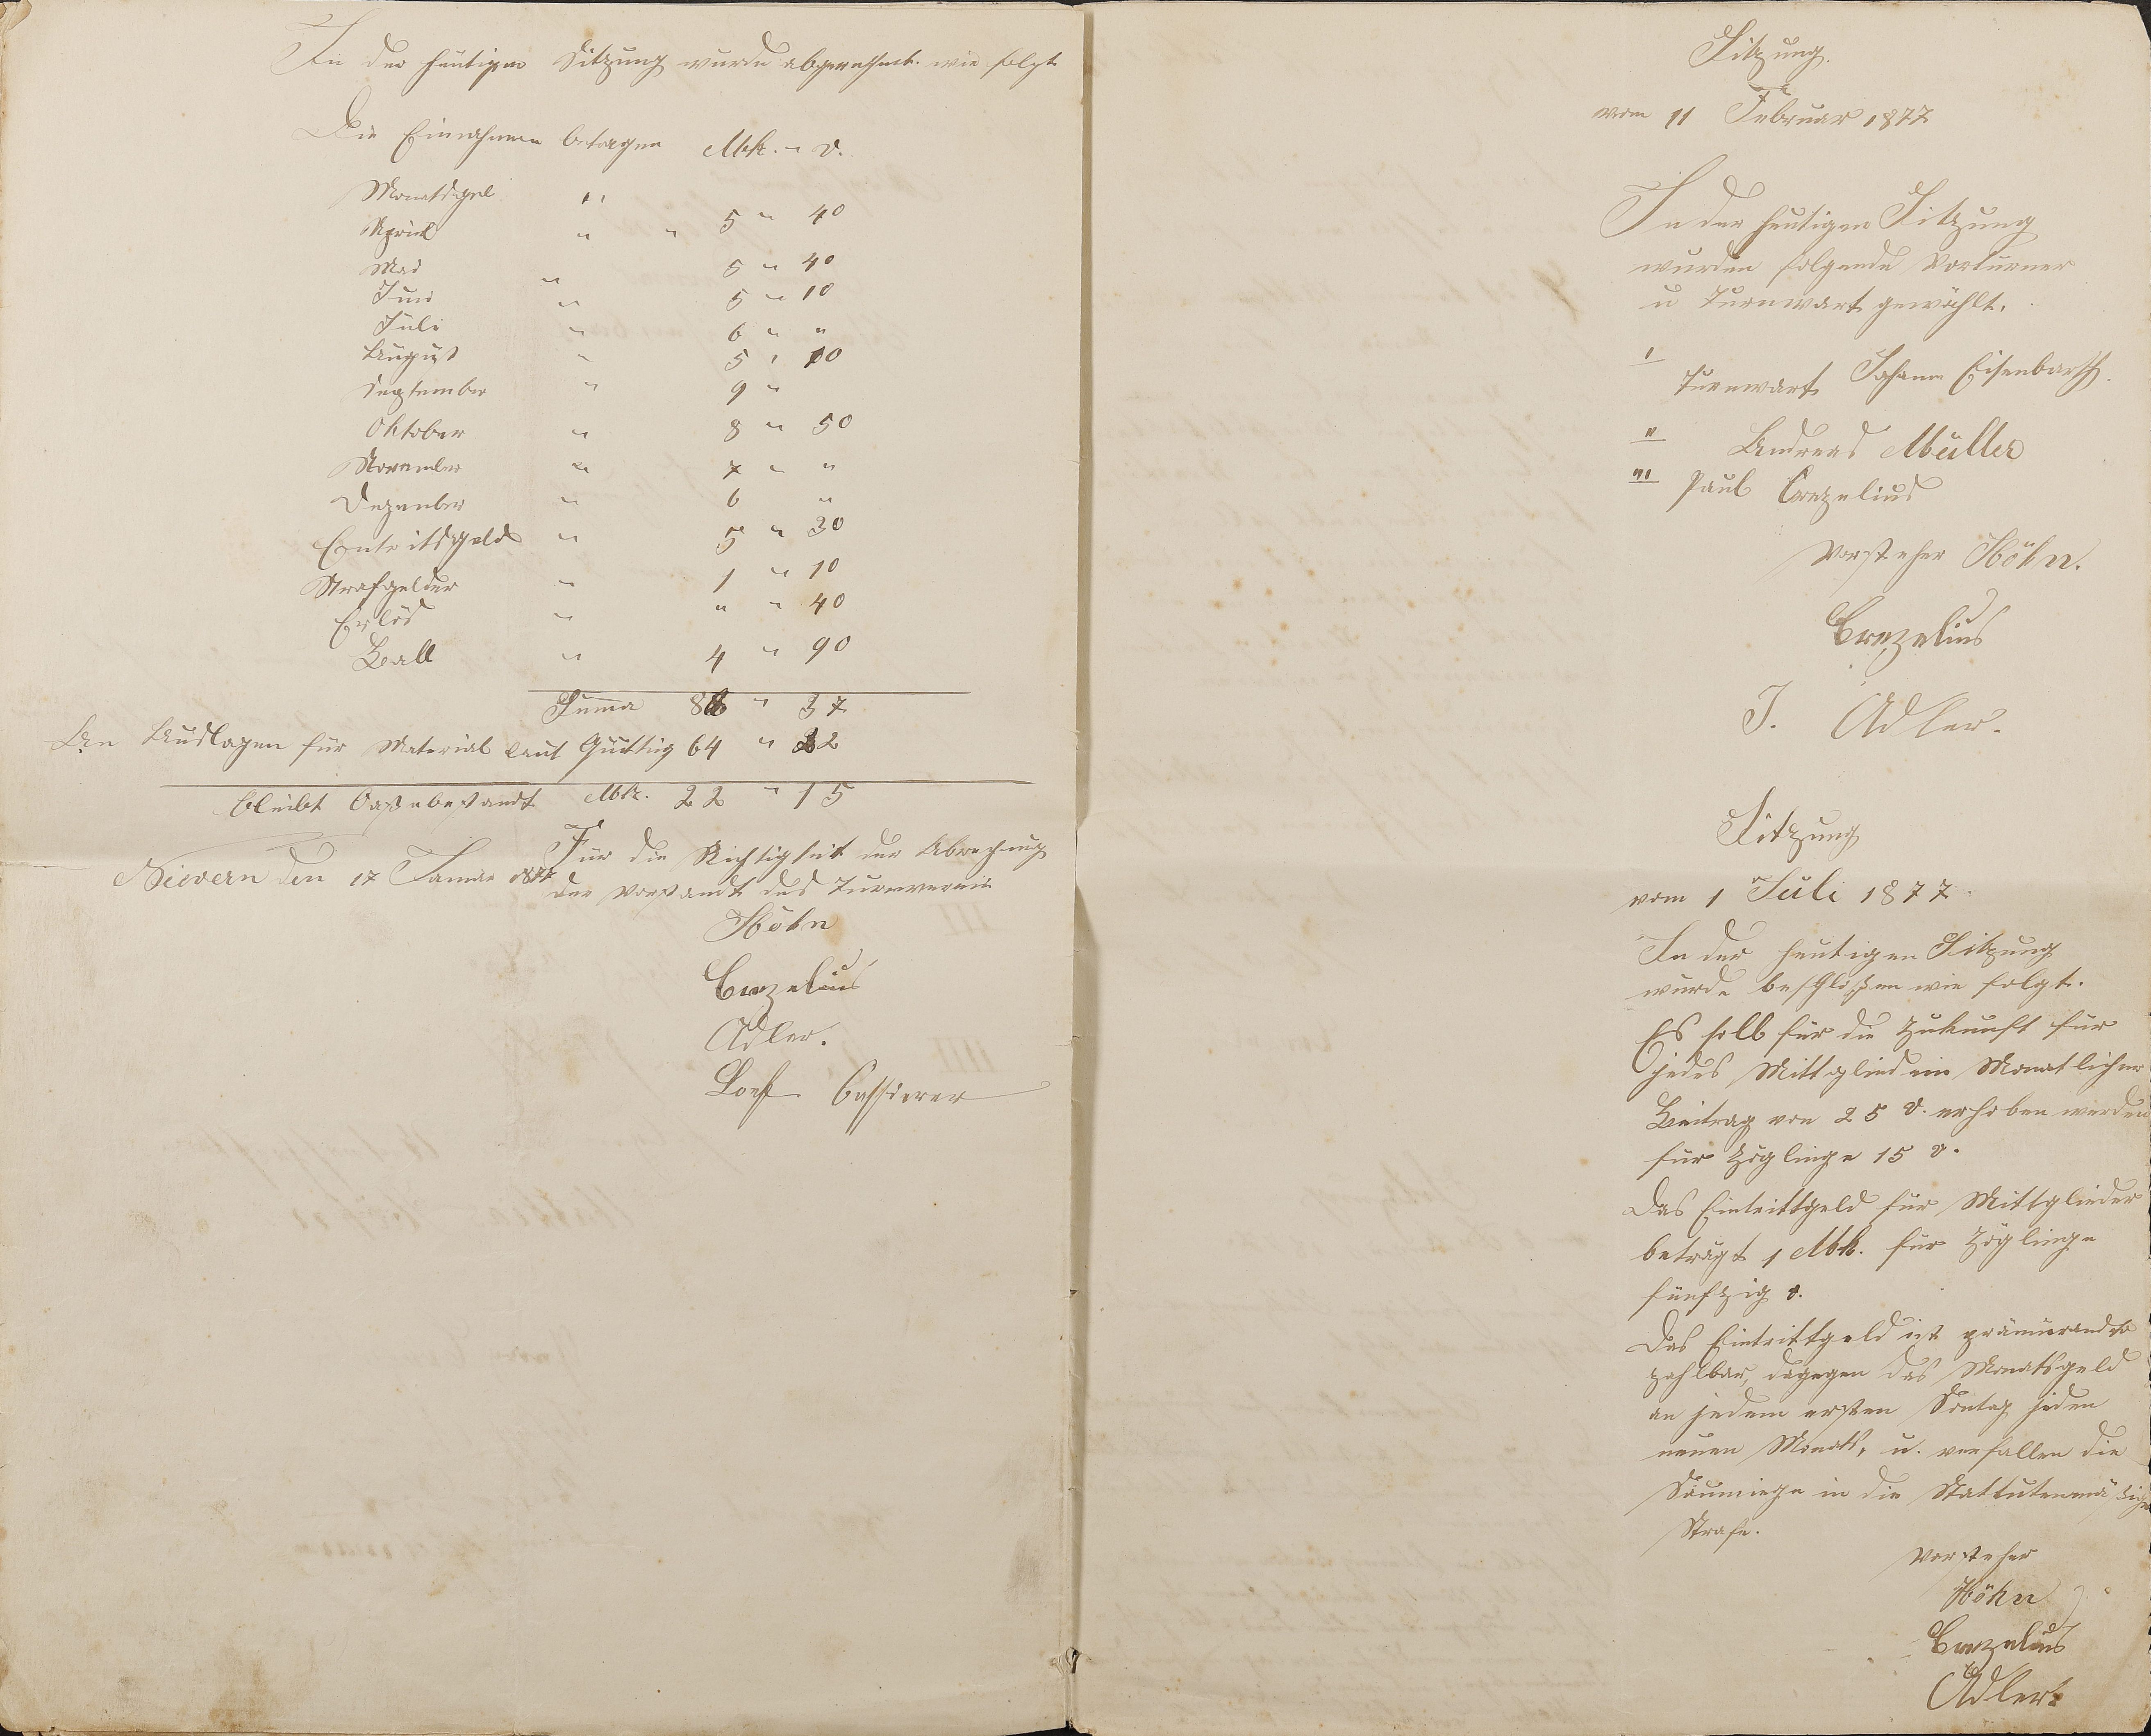 In der heutigen Sitzung wurde abgerechnet wie folgt
Die Einnahmen betragen Mk. " ₰.
Monatsgel "
April " " 5 " 40
Mai " 5 " 40
Juni " 5 " 10
Juli " 6 " "
August " 5 " 10
September " 9 "
Oktober " 8 " 50
November " 7 " "
Dezember " 6 "
Eintritsgeld " 5 " 30
Strafgelder " 1 " 10
Erlös " " " 40
Ball " 4 " 90
Summa 86 " 37
An Auslagen für Material laut Quittug 64 " 22
bleibt Cassebestandt Mk. 22 " 15
Nievern den 17 Januar 1877
Für die Richtigkeit der Abrechnug
der Vorstandt des Turnverein
Höhn
Crezelius
Adler.
Loef Cassierer
Sitzung.
vom 11 Februar 1877
In der heutigen Sitzung
wurden folgende Vorturner
u Turnwart gewählt.
I
Turnwart Johann Eisenbarth.
II Andreas Müller
III Paul Crezelius
Vorsteher Höhn.
Crezelius
J. Adler.
Sitzung
vom 1 Juli 1877.
In der heutigen Sitzung
wurde beschloßen wie folgt.
Es soll für die Zukunft für
jedes Mittglied ein Monatlicher
Beitrag von 25 ₰. erhoben werden
für Zöglinge 15 ₰.
Das Eintrittgeld für Mittglieder
beträgt 1 Mk. für Zöglinge
fünfzig ₰.
Das Eintrittgeld ist pränumerando
zahlbar, dagegen das Monatsgeld
an jedem ersten Sontag jeden
neuen Monats, u. verfallen die
Säumige in die Stattutenmäßige
Strafe.
Vorsteher
Höhn
Crezelius
Adler.